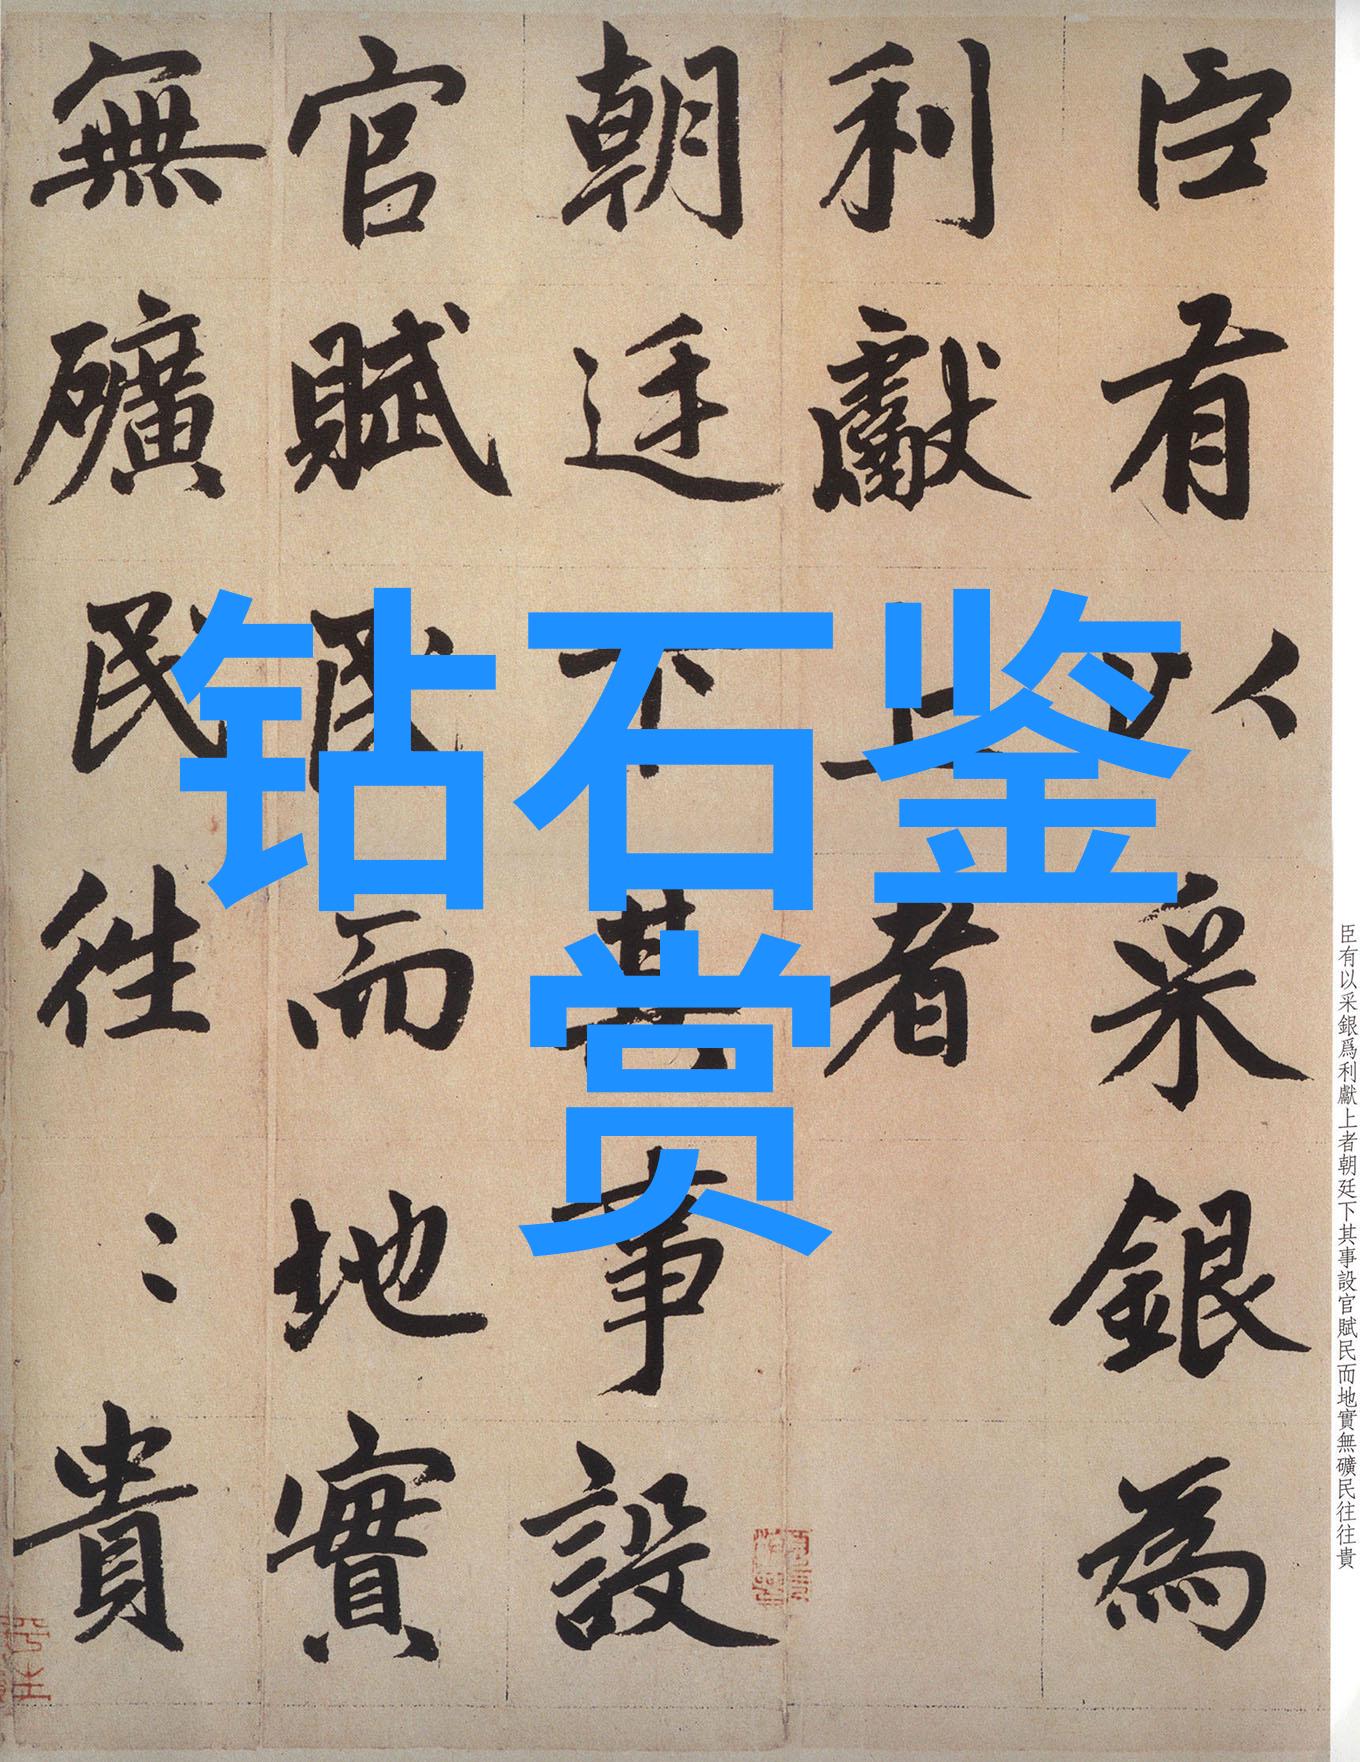 臣有以采銀為
利獻上者
朝廷下其事設
官賦民而地實
無礦民往〻貴
钻石鉴
赏
臣有以采銀爲利獻上者朝廷下其事設官賦民而地實無礦民往往貴